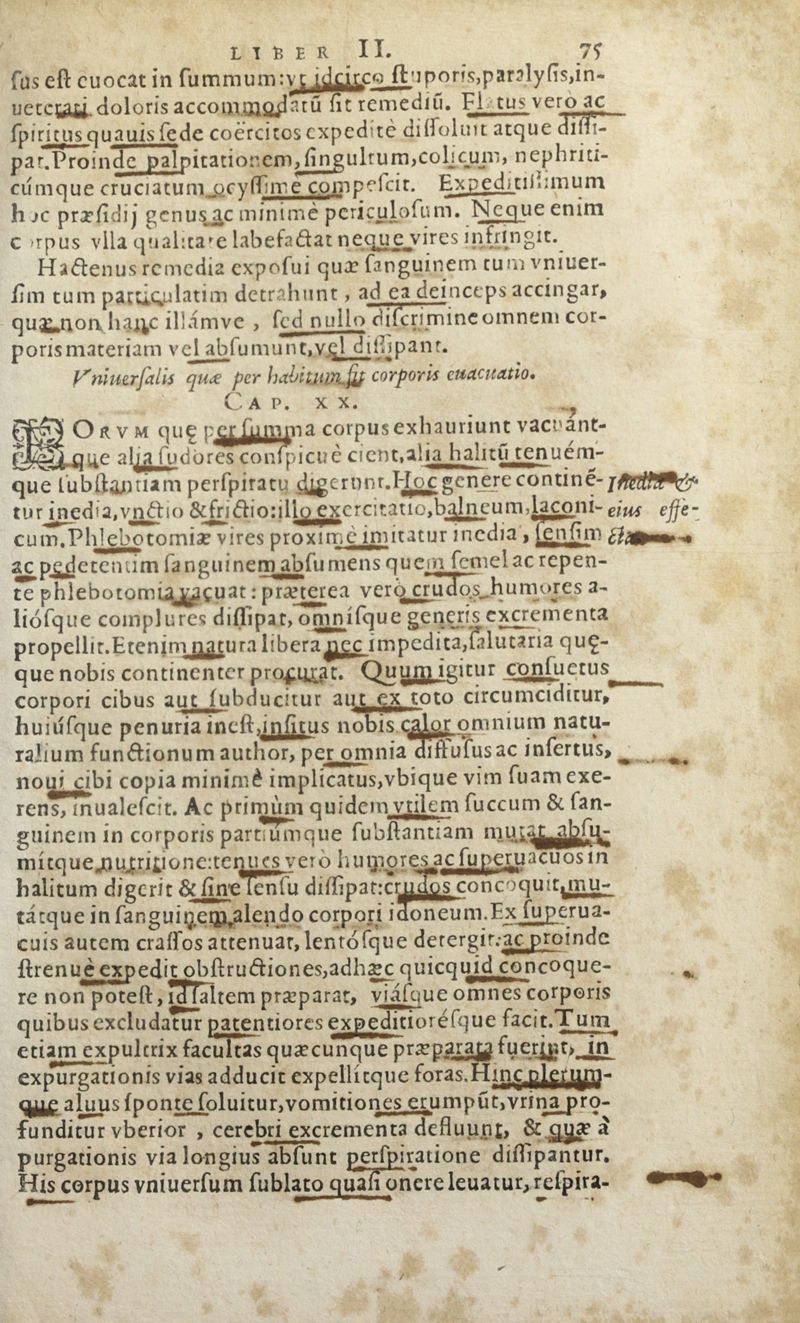 LIBER II. 75
ſus eſt euocat in ſummum: vt idcirco ſtuporis, paralyſis, in-
ueterati doloris accommodatũ ſit remediũ. Flatus vero ac
ſpiritus quauis ſede coërcitos expeditè diſſoluit atque diſſi-
pat. Proinde palpitationem, ſingultum, colicum, nephriti-
cúmque cruciatum ocyſſimè compeſcit. Expeditiſſimum
hoc præſidij genus ac minimè periculoſum. Neque enim
corpus vlla qualitate labefactat neque vires infringit.
Hactenus remedia expoſui quæ ſanguinem tum vniuer-
ſim tum particulatim detrahunt, ad ea deinceps accingar,
quæ non hanc illámve, ſed nullo diſcrimine omnem cor-
poris materiam vel abſumunt, vel diſſipant.
Vniuerſalis quæ per habitum fit corporis euacuatio.
CAP. XX.
ORVM quę per ſumma corpus exhauriunt vacuánt-
que alia ſudores conſpicuè cient, alia halitũ tenuém-
que ſubſtantiam perſpiratu digerunt. Hoc genere continē-
tur inedia, vnctio & frictio: illo exercitatio, balneum, laconi-
cum. Phlebotomiæ vires proximè imitatur inedia, ſenſim
ac pedetentim ſanguinem abſumens quem ſemel ac repen-
te phlebotomia vacuat: præterea verò crudos humores a-
lióſque complures diſſipat, omníſque generis excrementa
propellit. Etenim natura libera nec impedita, ſalutaria quę-
que nobis continenter procurat. Quum igitur conſuetus
corpori cibus aut ſubducitur aut ex toto circumciditur,
huiúſque penuria ineſt, inſitus nobis calor omnium natu-
ralium functionum author, per omnia diffuſus ac inſertus,
noui cibi copia minimè implicatus, vbique vim ſuam exe-
rens, inualeſcit. Ac primùm quidem vtilem ſuccum & ſan-
guinem in corporis partiúmque ſubſtantiam mutat abſu-
mítque nutritione: tenues verò humores ac ſuperuacuos in
halitum digerit & ſine ſenſu diſſipat: crudos concoquit, mu-
tátque in ſanguinem, alendo corpori idoneum. Ex ſuperua-
cuis autem craſſos attenuat, lentóſque detergit: ac proinde
ſtrenuè expedit obſtructiones, adhæc quicquid concoque-
re non poteſt, id ſaltem præparat, viáſque omnes corporis
quibus excludatur patentiores expeditioréſque facit. Tum
etiam expultrix facultas quæcunque præparata fuerint, in
expurgationis vias adducit expellítque foras. Hinc plerum-
que aluus ſponte ſoluitur, vomitiones erumpūt, vrina pro-
funditur vberior, cerebri excrementa defluunt, & quæ à
purgationis via longius abſunt perſpiratione diſſipantur.
His corpus vniuerſum ſublato quaſi onere leuatur, reſpira-
&
eius effe-